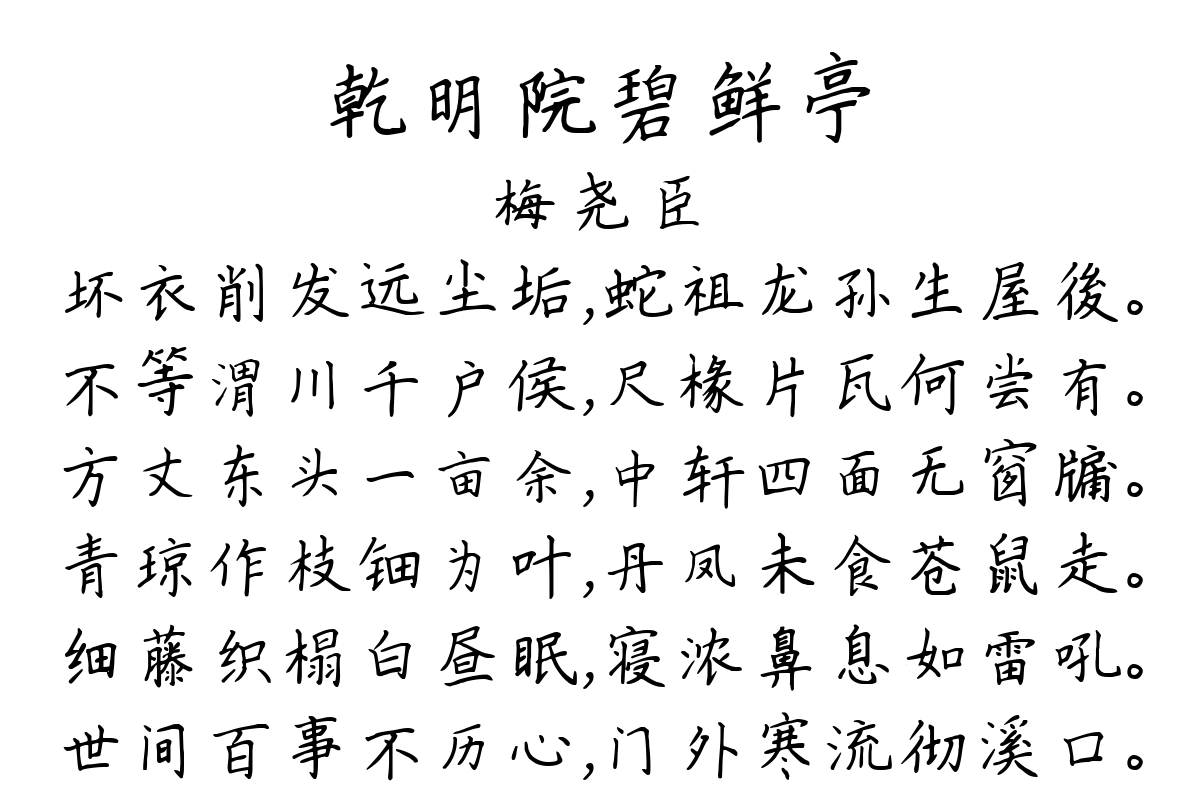 乾明院碧鲜亭
梅尧臣
坏衣削发远尘垢,蛇祖龙孙生屋後。
不等渭川千户侯,尺椽片瓦何尝有。
方丈东头一亩余,中轩四面无窗牖。
青琼作枝钿为叶,丹凤未食苍鼠走。
细藤织榻白昼眠,寝浓鼻息如雷吼。
世间百事不历心,门外寒流彻溪口。